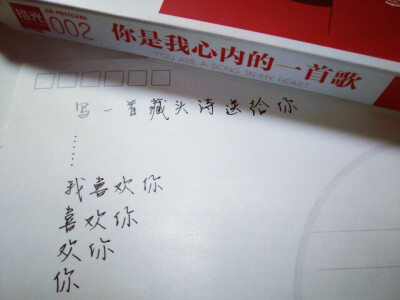 拾光
GB POSTCARD
002
你是我心内的一首歌
YOU ARE A SONG IN MY HEART
写一首藏头诗送给你
……
我喜欢你
喜欢你
欢你
你